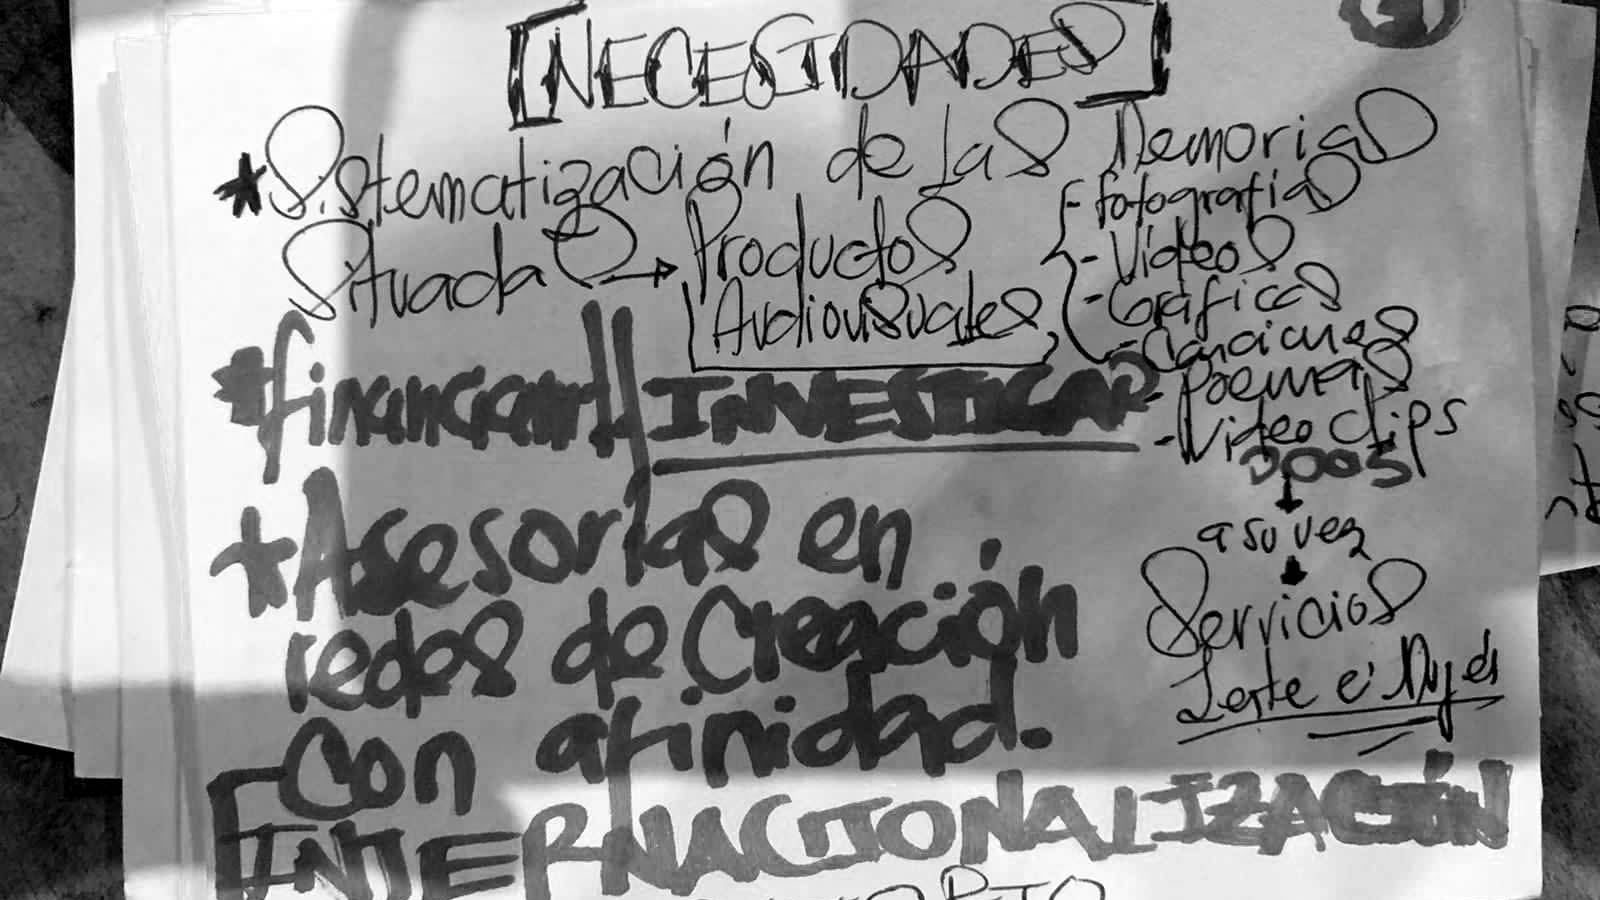 [NECESIDADES]
* Sistematización de las Memorias
Situadas → Productos
Audiovisuales
- fotografías
- Videos
- Gráficas
- Canciones
- Poemas
- Video clips
* financiar // INVESTIGAR
a su vez
Servicios
* Asesorías en
redes de Creación
con afinidad.
[INTERNACIONALIZACIÓN